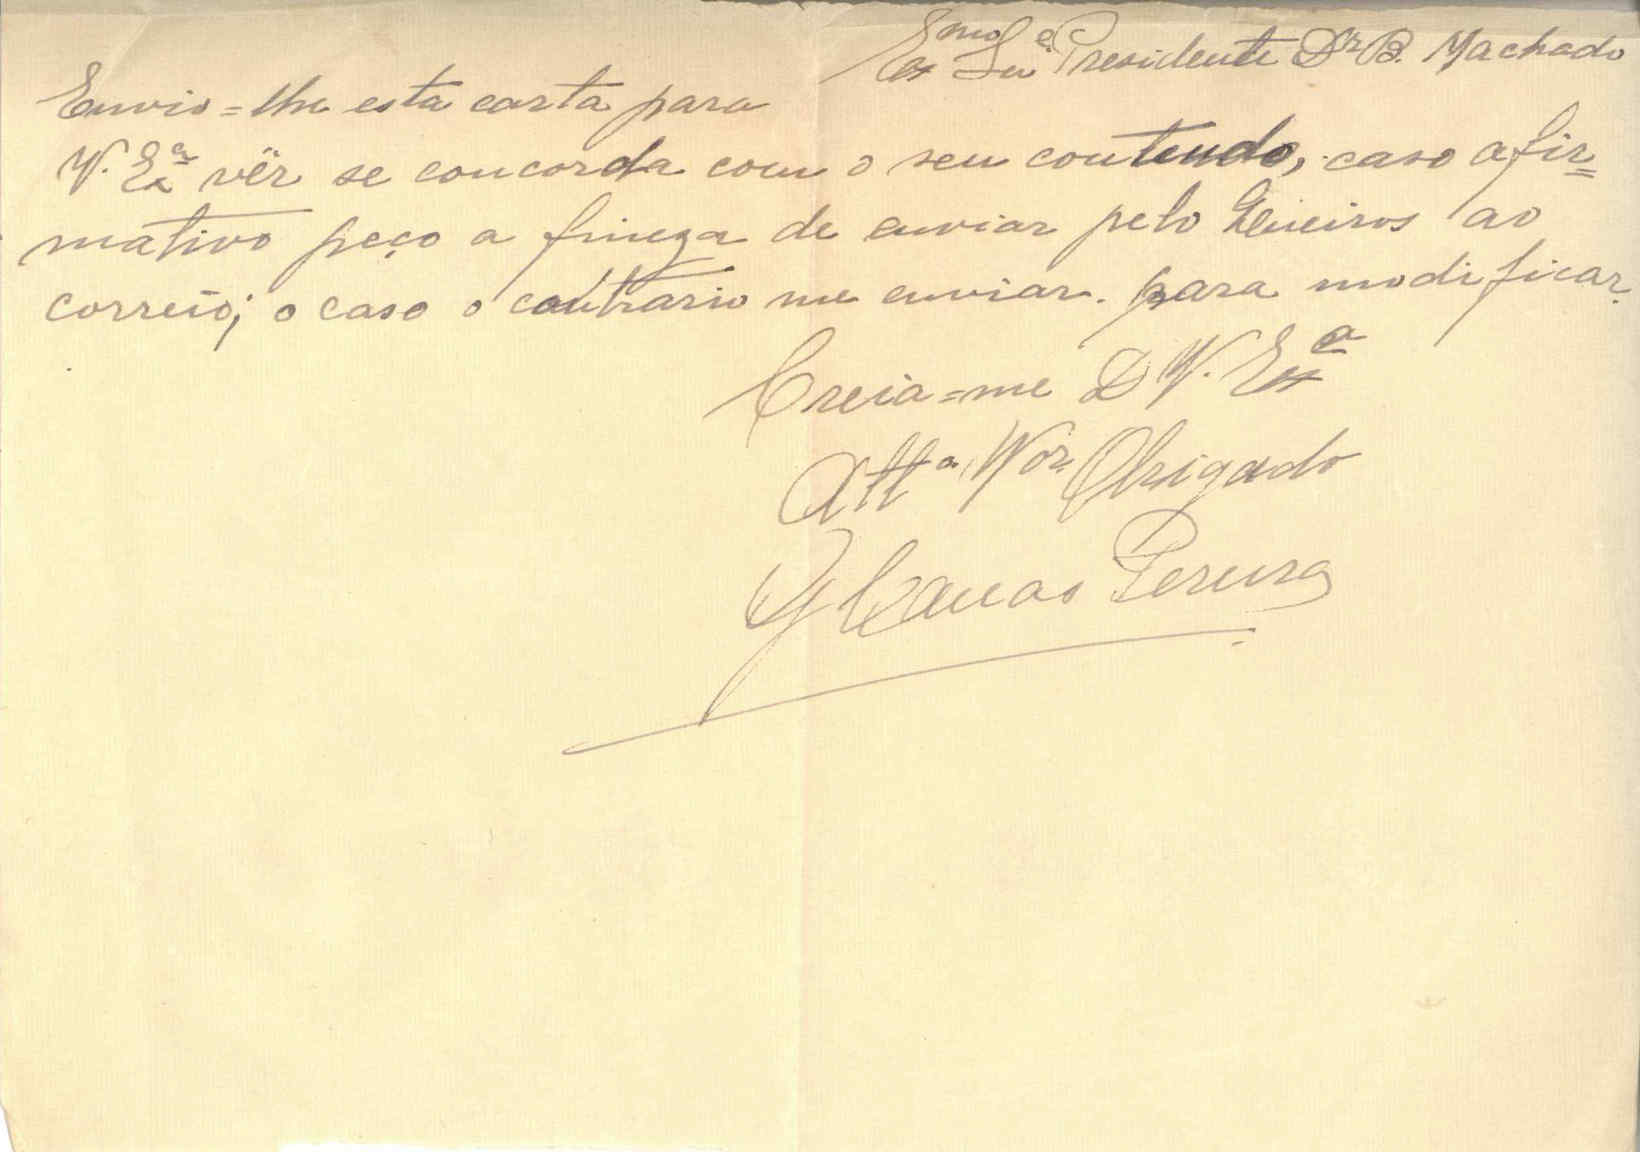 Exmo Snr Presidente Dr B. Machado
Envio=lhe esta carta para
V. Exa vêr se concorda com o seu contendo, caso afir=
mativo peço a fineza de enviar pelo Queiros ao
correio; o caso o contrario me enviar. para modificar.
Creia=me D V. Exa
Atto Vor Obrigado
Canas Pereira